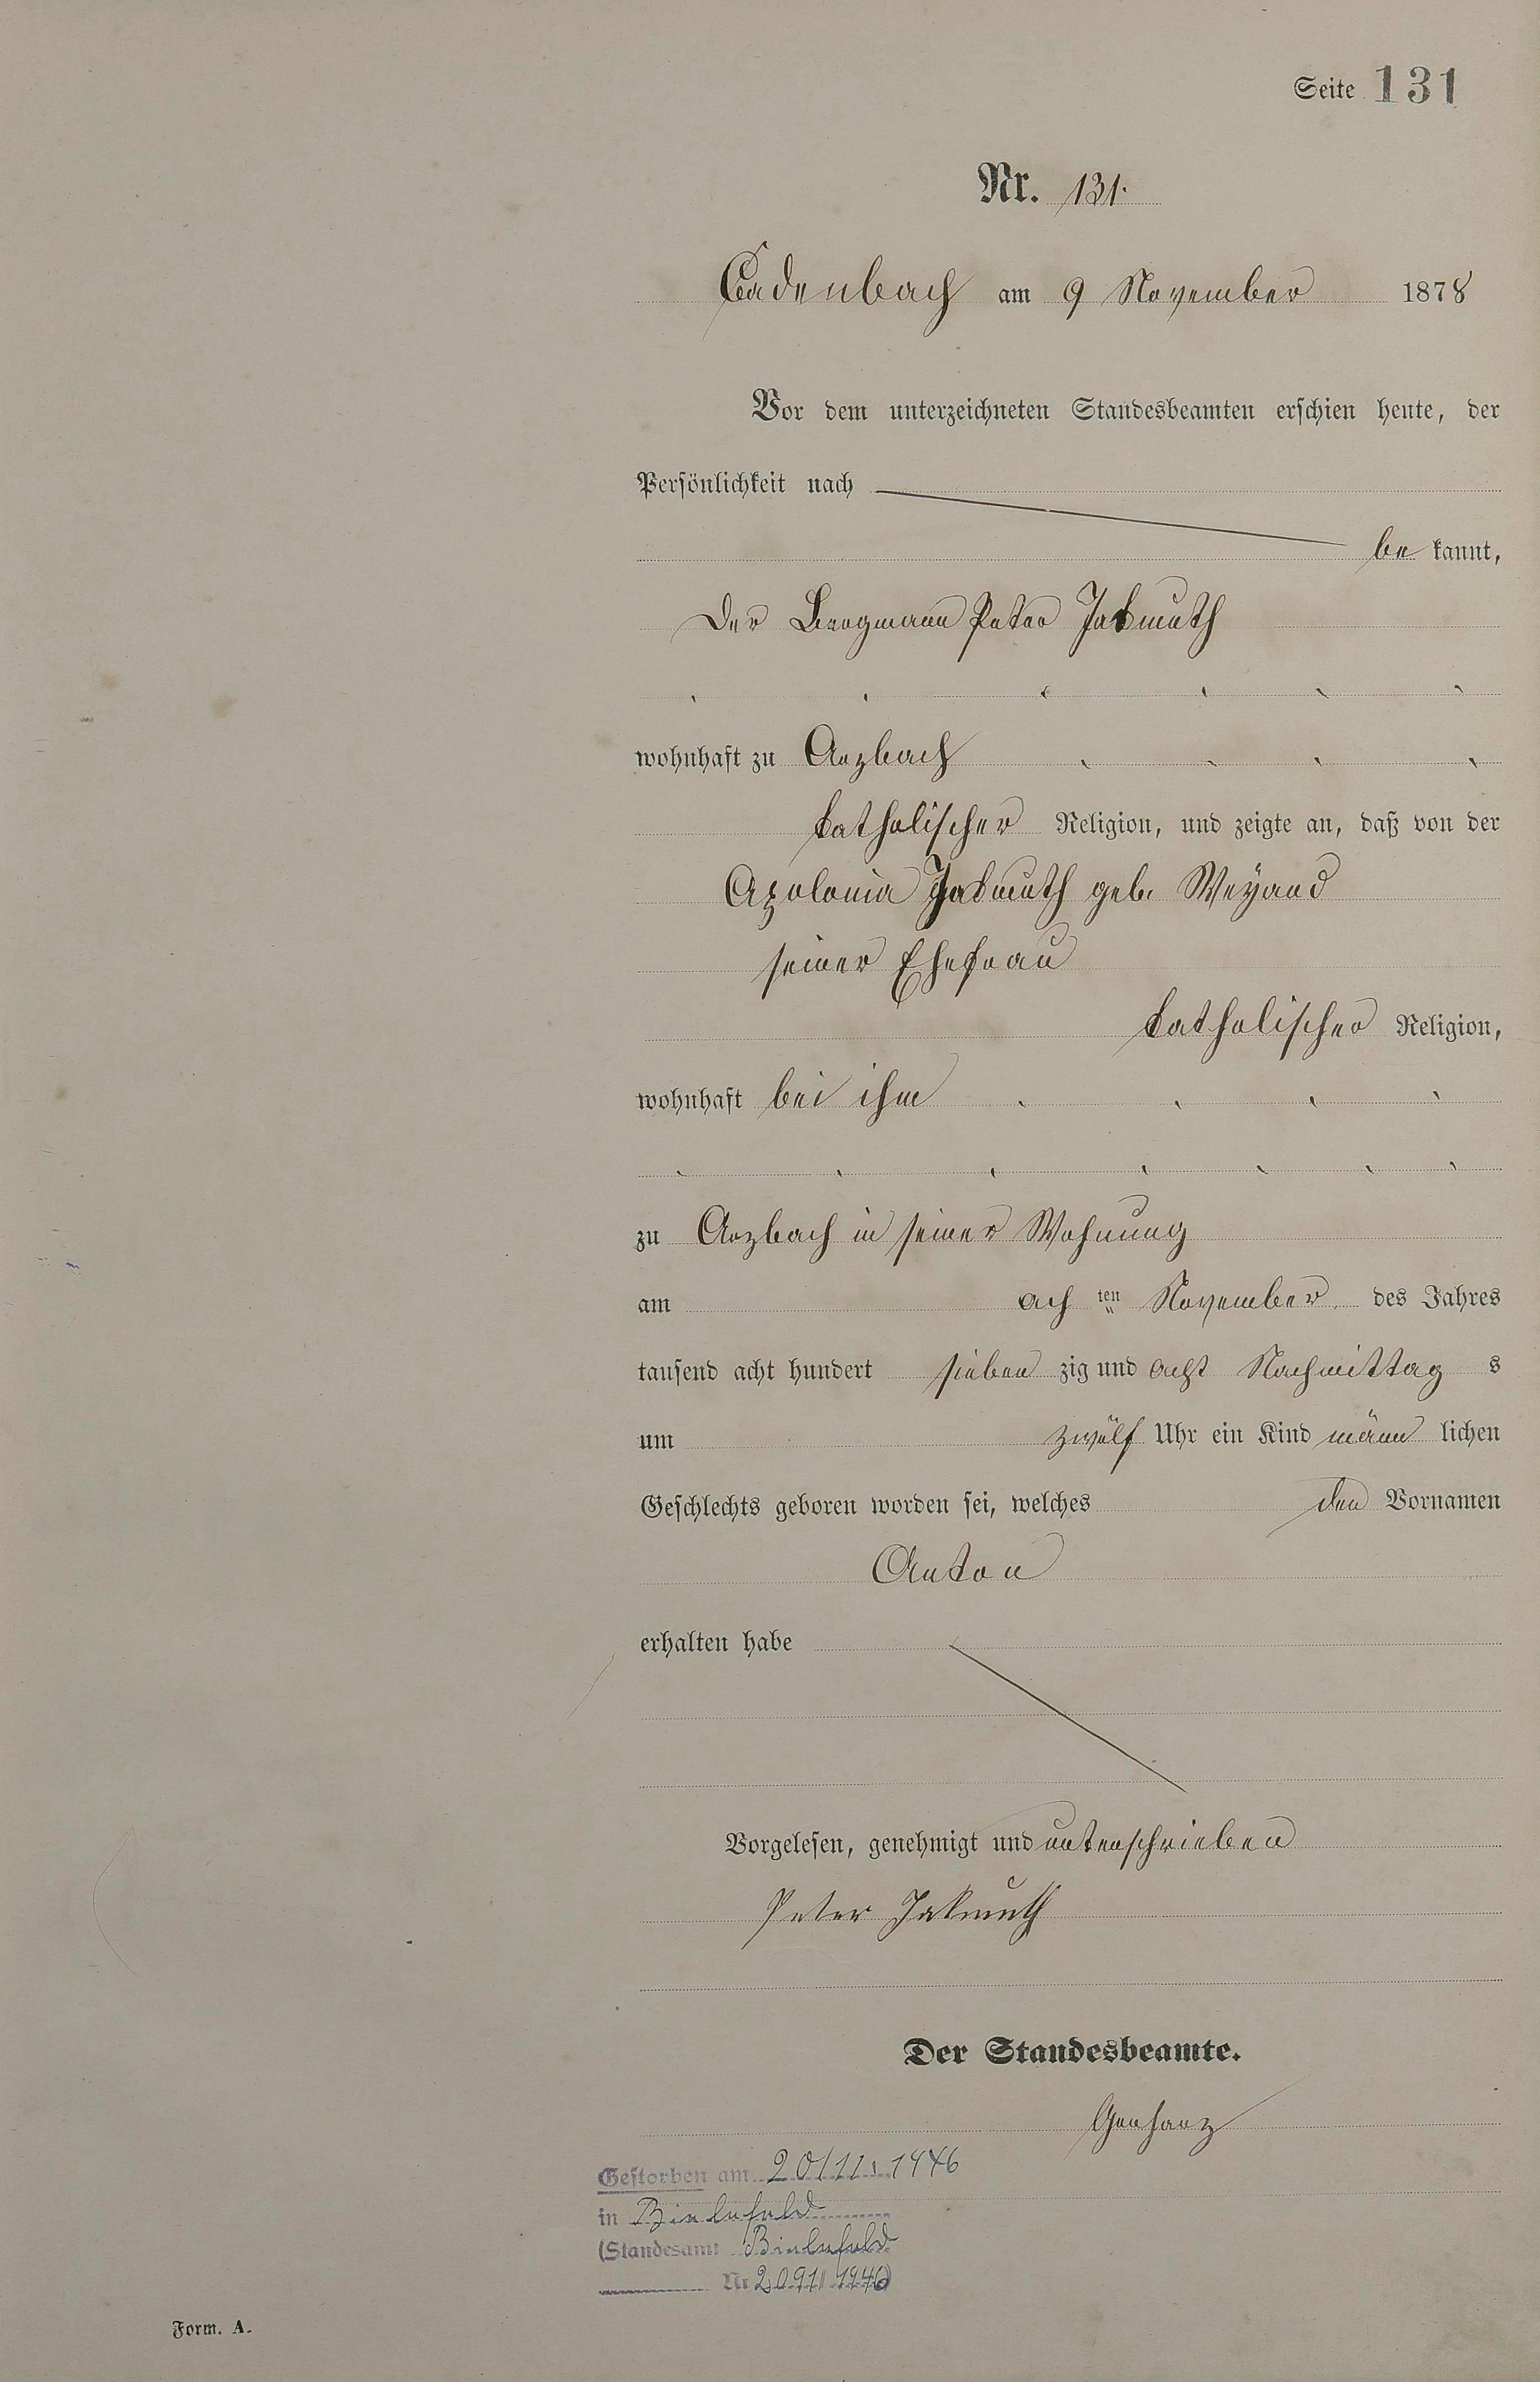 Seite 131
Nr. 131.
Cadenbach am 9 November 1878
Vor dem unterzeichneten Standesbeamten erschien heute, der
Persönlichkeit nach
be kannt,
Der Bergmann Peter Jakmuth
wohnhaft zu Arzbach
katholischer Religion, und zeigte an, daß von der
Apolonia Jakmuth geb. Weyand
seiner Ehefrau
katholischer Religion,
wohnhaft bei ihm
zu Arzbach in seiner Wohnung
am ach ten November des Jahres
tausend acht hundert sieben zig und acht Nachmittag s
um zwölf Uhr ein Kind männ lichen
Geschlechts geboren worden sei, welches den Vornamen
Anton
erhalten habe
Vorgelesen, genehmigt und unterschrieben
Peter Jakmuth
Der Standesbeamte.
Gestorben am 20/11. 1946
in Bielefeld
(Standesamt Bielefeld
Nr 2091/1946)
Form. A.